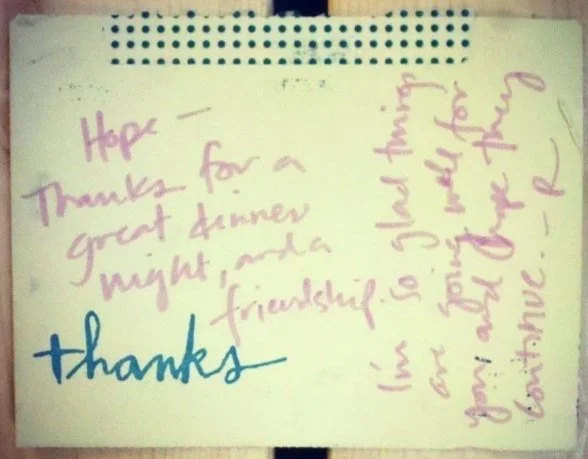 Hope -
Thanks for a
great dinner
night, and a
friendship.
thanks
I'm so glad things
are going well for
you and hope they
continue. - R